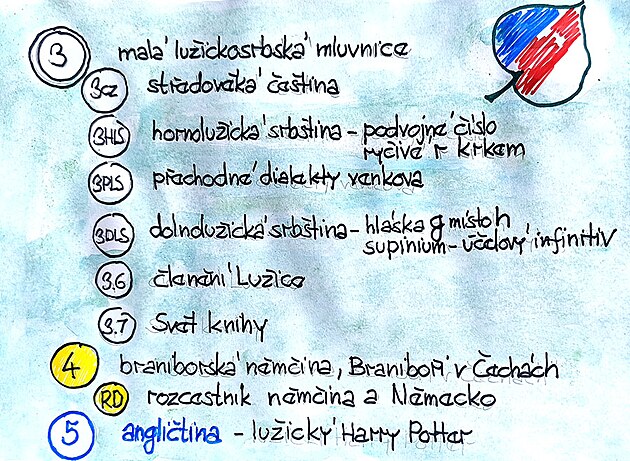 3 malá lužickosrbská mluvnice
3CZ středověká čeština
3HLS hornolužická srbština - podvojné číslo
ryčivé r krkem
3PLS přechodné dialekty venkova
3DLS dolnolužická srbština - hláska g místo h
supinium - účelový infinitiv
3.6 členění Lužice
3.7 Svět knihy
4 braniborská němčina, Braniboři v Čechách
RD rozcestník němčina a Německo
5 angličtina - lužický Harry Potter